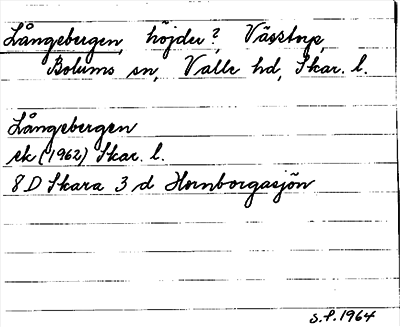 Långebergen, höjder?, Västorp,
Bolums sn, Valle hd, Skar. l.
Långebergen
ek (1962) Skar. l.
8 D Skara 3 d Hornborgasjön
S.F. 1964